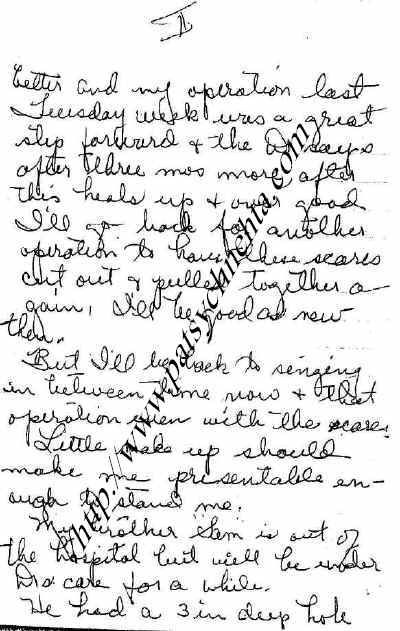 II
better and my operation last
Tuesday week was a great
step forward & the Dr says
after three mos more after
this heals up & over good
I'll go back for another
operation to have these scares
cut out & pulled together a-
gain, I'll be good as new
then.
But I'll be back to singing
in between time now & that
operation even with the scares
Little make up should
make me presentable en-
ough to stand me.
My brother Sem is out of
the hospital but will be under
Drs care for a while.
He had a 3 in deep hole
http://www.patsyclinehta.com